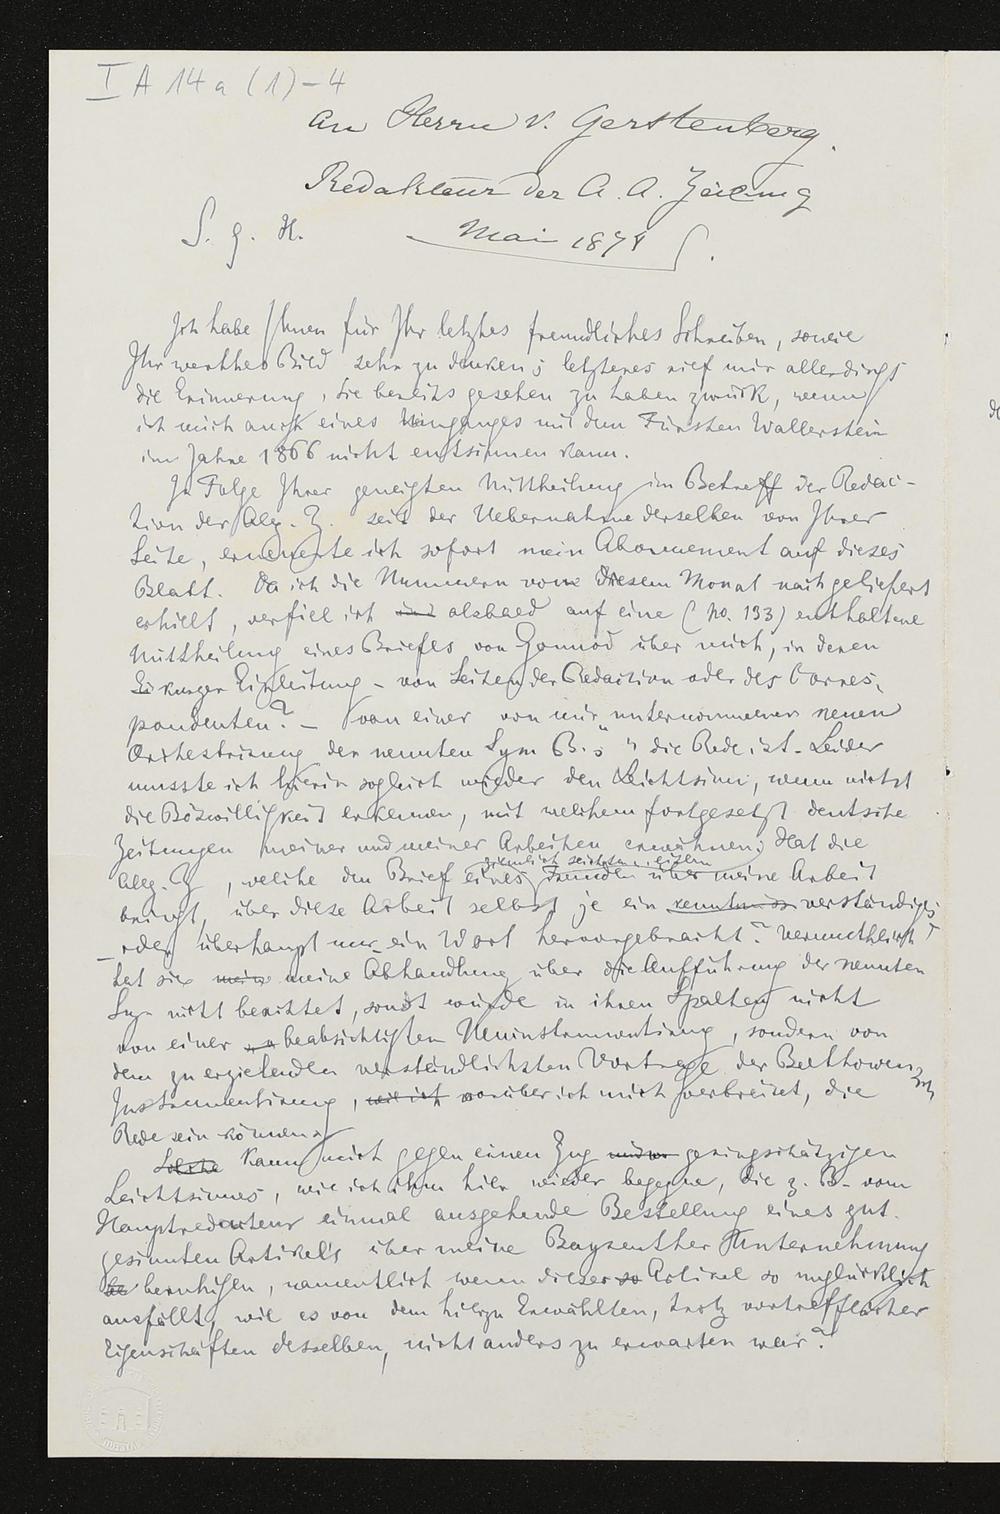 I A 14 a (1)-4
An Herrn v. Gerstenberg.
Redakteur der A. A. Zeitung
S. g. H.
Mai 1874
Ich habe Ihnen für Ihr letztes freundliches Schreiben, sowie
Ihr werthes Bild sehr zu danken; letzteres rief mir allerdings
die Erinnerung, Sie bereits gesehen zu haben zurück, wenn
ich mich auch eines Umganges mit dem Fürsten Wallerstein
im Jahre 1866 nicht entsinnen kann.
In Folge Ihrer geneigten Mittheilung im Betreff der Redac-
tion der Allg. Z. seit der Uebernahme derselben von Ihrer
Seite, erneuerte ich sofort mein Abonnement auf dieses
Blatt. Da ich die Nummern vom diesem Monat nachgeliefert
erhielt, verfiel ich alsbald auf eine (No. 133) enthaltene
Mittheilung eines Briefes von Gounod über mich, in deren
kurzer Einleitung - von Seiten der Redaction oder des Corres-
pondenten? - von einer von mir unternommenen neuen
Orchestrirung der neunten Sym B.s die Rede ist. Leider
musste ich hierin sogleich wieder den Leichtsinn, wenn nicht
die Böswilligkeit erkennen, mit welchem fortgesetzt deutsche
Zeitungen meiner und meiner Arbeiten erwähnen; Hat die
Allg. Z, welche den Brief eines über meine Arbeit
bringt, über diese Arbeit selbst je ein verständiges
oder überhaupt nur ein Wort hervorgebracht? Vermuthlich
hat sie mein meine Abhandlung über die Aufführung der neunten
Sy. nicht beachtet, sonst würde in ihren Spalten nicht
von einer beabsichtigten Neuinstrumentirung, sondern von
dem zu erzielenden verständlichsten Vortrage der Beethovenschen
Instrumentirung, worüber ich mich verbreitet, die
Rede sein können.
Solche Kann mich gegen einen Zug geringschätzigen
Leichtsinnes, wie ich ihm hier wieder begegne, die z. B. vom
Hauptredacteur einmal ausgehende Bestellung eines gut
gesinnten Artikels über meine Bayreuther Unternehmung
beruhigen, namentlich wenn dieser so Artikel so unglücklich
ausfällt, wie es von dem hierzu Erwählten, trotz vortrefflicher
Eigenschaften desselben, nicht anders zu erwarten war?